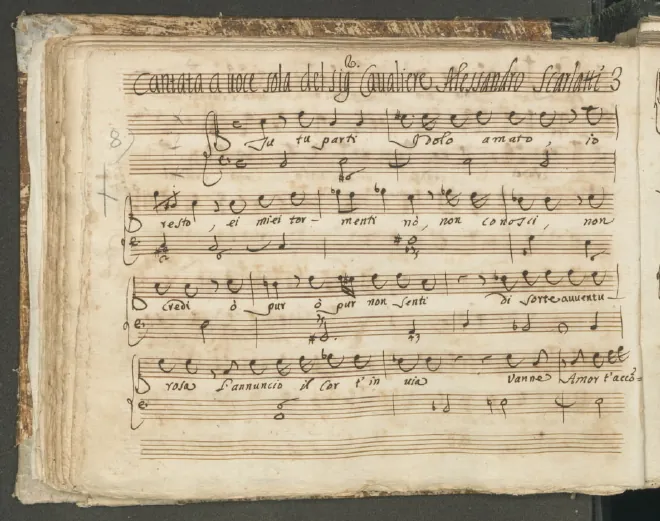 Cantata a voce sola del Sig.r Cavaliere Alessandro Scarlatti 3
8
Tu tu parti Idolo amato, io
resto, ei miei tor- menti nò, non conosci, non
credi ò pur ò pur non senti di sorte avventu-
rosa L'annuncio il Cor t'in via Vanne Amor t'acco-